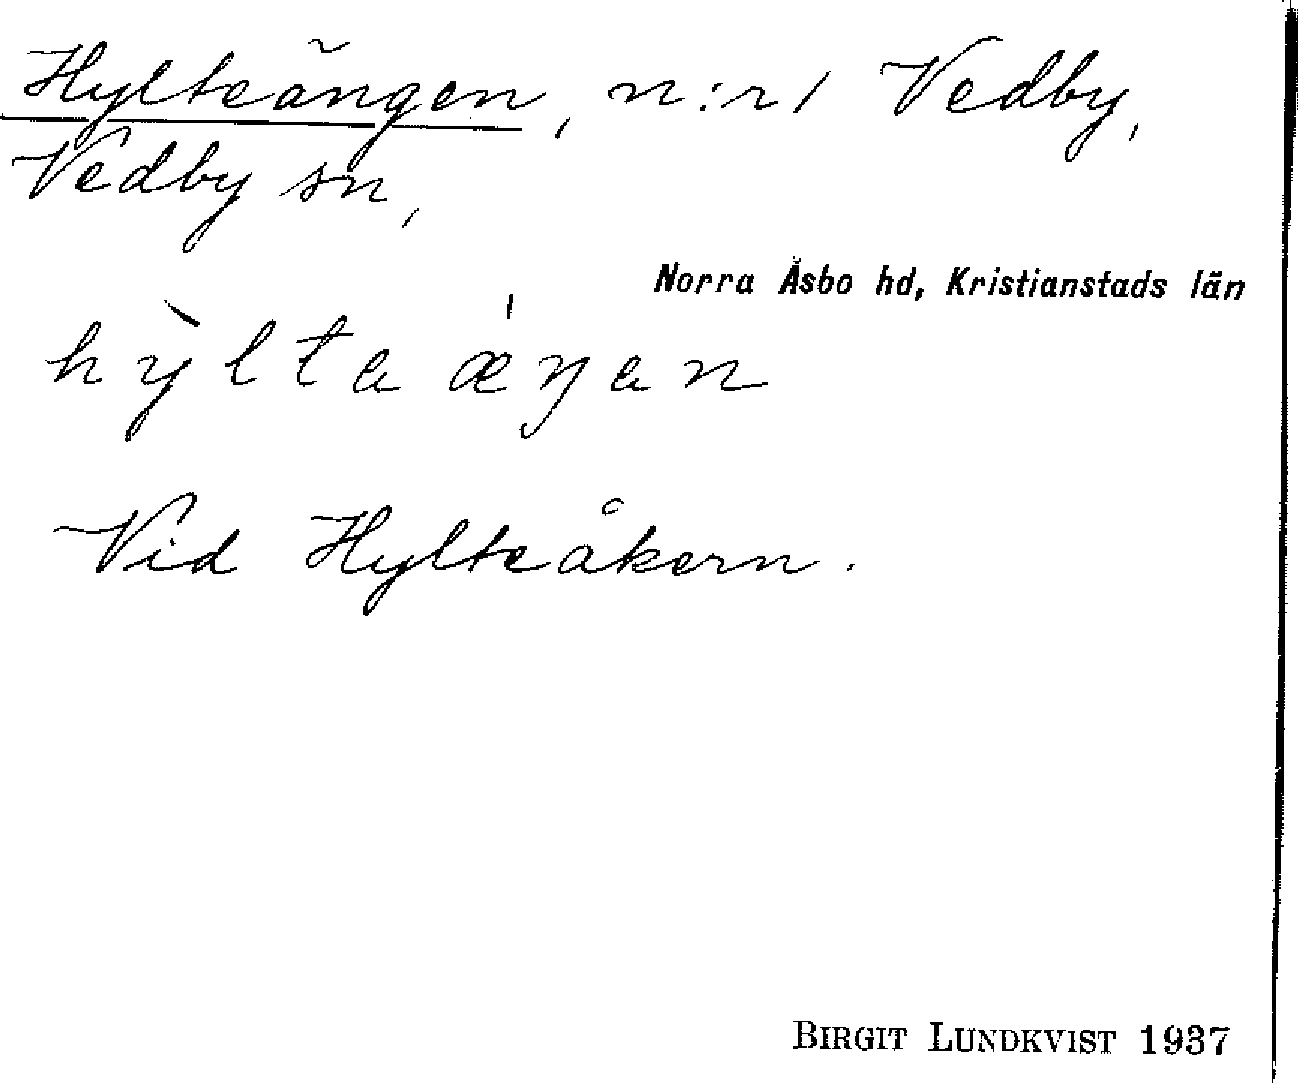 Hylteängen, n:r 1 Vedby,
Vedby sn,
Norra Åsbo hd, Kristianstads län
hỳltaǽŋan
Vid Hylteåkern.
BIRGIT LUNDKVIST 1937